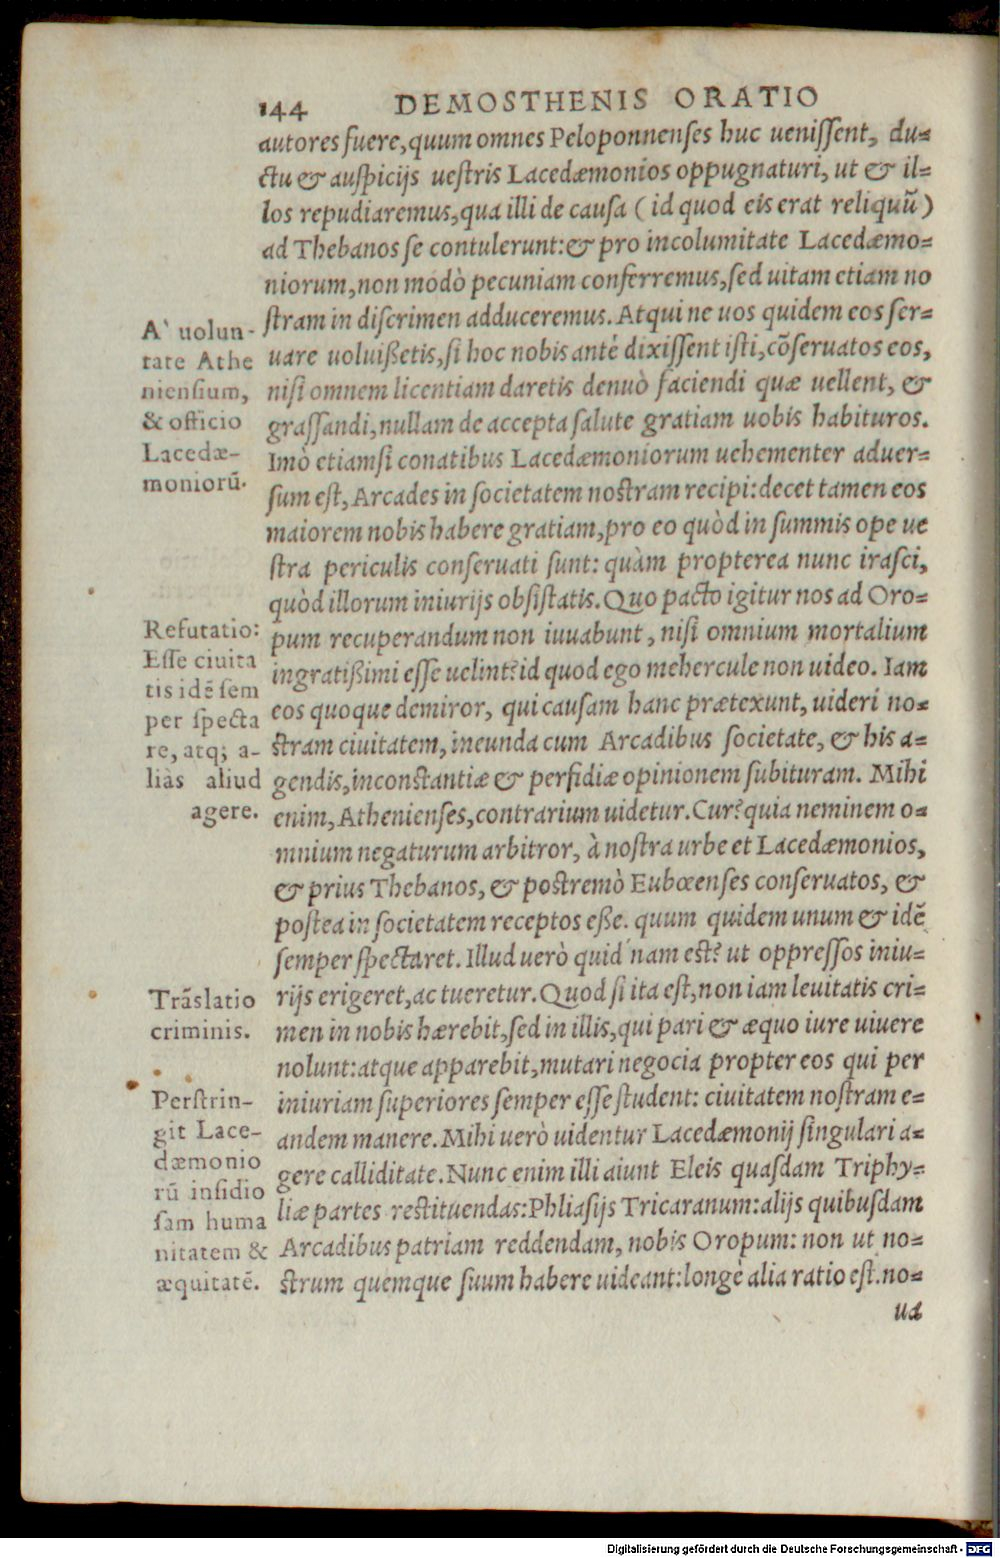 144 DEMOSTHENIS ORATIO
autores fuere, quum omnes Peloponnenses huc uenissent, du=
ctu & auspicijs uestris Lacedæmonios oppugnaturi, ut & il=
los repudiaremus, qua illi de causa ( id quod eis erat reliquũ )
ad Thebanos se contulerunt: & pro incolumitate Lacedæmo=
niorum, non modò pecuniam conferremus, sed uitam etiam no
stram in discrimen adduceremus. Atqui ne uos quidem eos ser=
uare uoluißetis, si hoc nobis antè dixissent isti, cõseruatos eos,
nisi omnem licentiam daretis denuò faciendi quæ uellent, &
grassandi, nullam de accepta salute gratiam uobis habituros.
Imò etiamsi conatibus Lacedæmoniorum uehementer aduer=
sum est, Arcades in societatem nostram recipi: decet tamen eos
maiorem nobis habere gratiam, pro eo quòd in summis ope ue
stra periculis conseruati sunt: quàm propterea nunc irasci,
quòd illorum iniurijs obsistatis. Quo pacto igitur nos ad Oro=
pum recuperandum non iuuabunt, nisi omnium mortalium
ingratißimi esse uelint? id quod ego mehercule non uideo. Iam
eos quoque demiror, qui causam hanc prætexunt, uideri no=
stram ciuitatem, ineunda cum Arcadibus societate, & his a=
gendis, inconstantiæ & perfidiæ opinionem subituram. Mihi
enim, Athenienses, contrarium uidetur. Cur? quia neminem o=
mnium negaturum arbitror, à nostra urbe et Lacedæmonios,
& prius Thebanos, & postremò Eubœenses conseruatos, &
postea in societatem receptos eße. quum quidem unum & idẽ
semper spectaret. Illud uerò quid nam est? ut oppressos iniu=
rijs erigeret, ac tueretur. Quod si ita est, non iam leuitatis cri=
men in nobis hærebit, sed in illis, qui pari & æquo iure uiuere
nolunt: atque apparebit, mutari negocia propter eos qui per
iniuriam superiores semper esse student: ciuitatem nostram e=
andem manere. Mihi uerò uidentur Lacedæmonij singulari a=
gere calliditate. Nunc enim illi aiunt Eleis quasdam Triphy=
liæ partes restituendas: Phliasijs Tricaranum: alijs quibusdam
Arcadibus patriam reddendam, nobis Oropum: non ut no=
strum quemque suum habere uideant: longè alia ratio est. no=
uæ
A` uolun-
tate Athe
niensium,
& officio
Lacedæ-
moniorũ.
Refutatio:
Esse ciuita
tis idẽ sem
per specta
re, atq; a-
liàs aliud
agere.
Trãslatio
criminis.
Perstrin-
git Lace-
dæmonio
rũ insidio
sam huma
nitatem &
æquitatẽ.
Digitalisierung gefördert durch die Deutsche Forschungsgemeinschaft - DFG